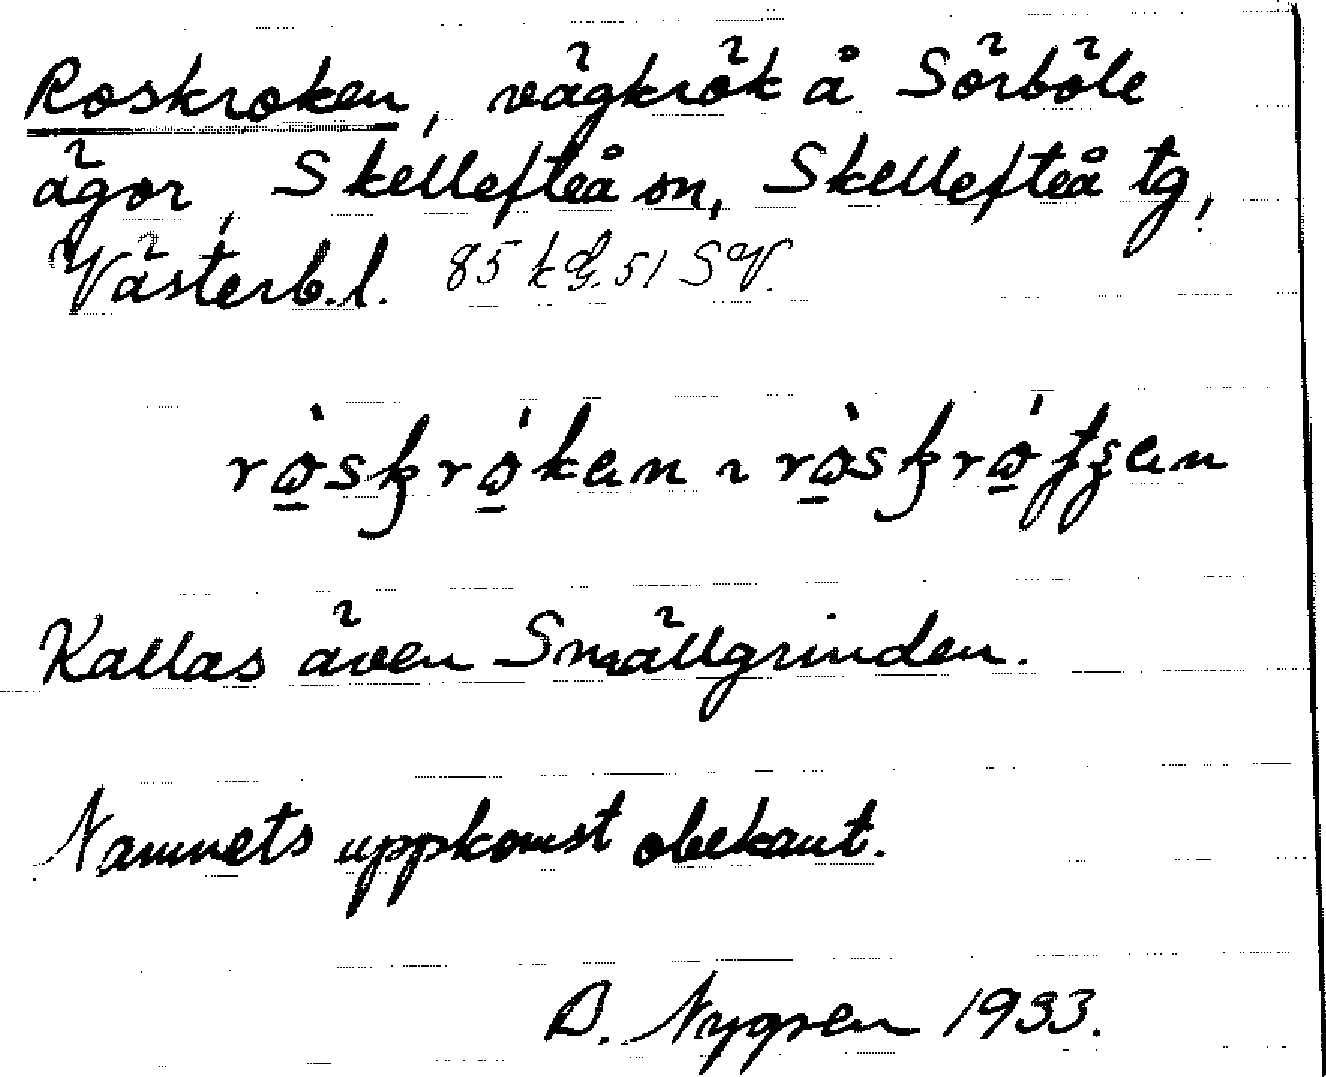 Roskroken, vägkrök å Sörböle
ägor, Skellefteå sn, Skellefteå tg,
Västerb.l. 85 kdg. 51 SV.
Kallas även Smällgrinden.
Namnets uppkomst obekant.
D. Nygren 1933.